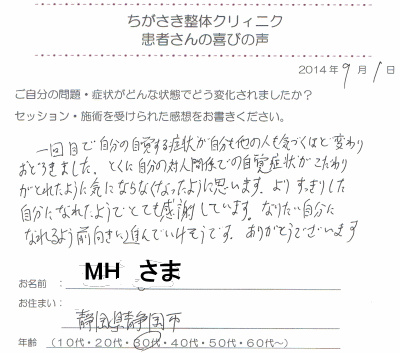 ちがさき整体クリィニク
患者さんの喜びの声
2014年 9月 1日
ご自分の問題・症状がどんな状態でどう変化されましたか?
セッション・施術を受けられた感想をお書きください。
一回目で自分の自覚する症状が自分も他の人も気づくほど変わり
おどろきました。とくに自分の対人関係での自覚症状がこだわり
がとれたように気にならなくなったように思います。よりすっきりした
自分になれたようでとても感謝しています。なりたい自分に
なれるよう前向きに進んでいけそうです。ありがとうございます
お名前: MH さま
お住まい:
静岡県静岡市
年齢 (10代・20代・30代・40代・50代・60代~)